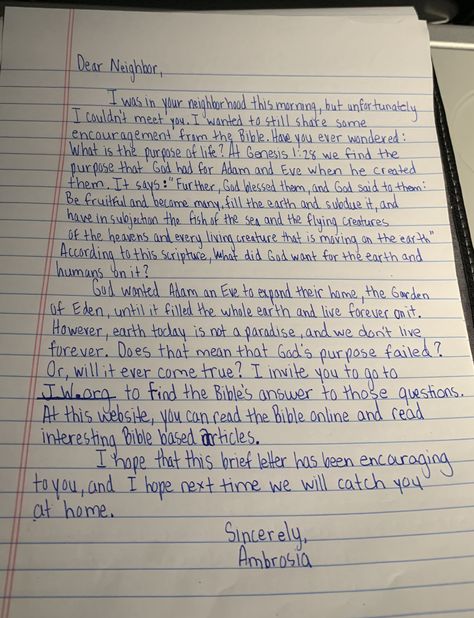 Dear Neighbor,
I was in your neighborhood this morning, but unfortunately
I couldn't meet you. I wanted to still share some
encouragement from the Bible. Have you ever wondered:
What is the purpose of life? At Genesis 1:28 we find the
purpose that God had for Adam and Eve when he created
them. It says: "Further, God blessed them, and God said to them:
Be fruitful and become many, fill the earth and subdue it, and
have in subjection the fish of the sea and the flying creatures
of the heavens and every living creature that is moving on the earth"
According to this scripture, what did God want for the earth and
humans on it?
God wanted Adam an Eve to expand their home, the Garden
of Eden, until it filled the whole earth and live forever on it.
However, earth today is not a paradise, and we don't live
forever. Does that mean that God's purpose failed?
Or, will it ever come true? I invite you to go to
J.W.org to find the Bible's answer to those questions.
At this website, you can read the Bible online and read
interesting Bible based articles.
I hope that this brief letter has been encouraging
to you, and I hope next time we will catch you
at home.
Sincerely,
Ambrosia